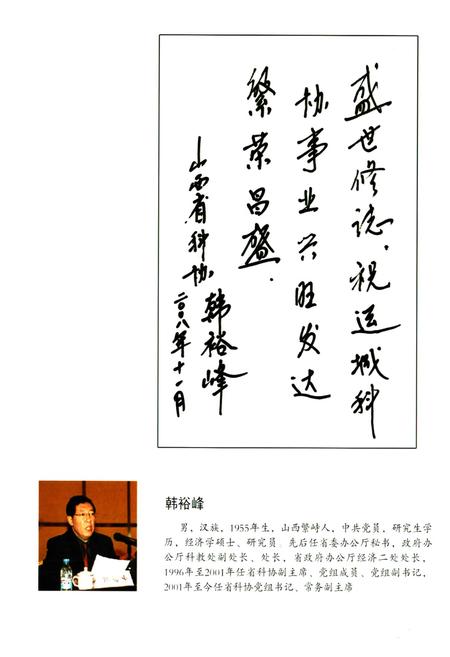 盛世修誌，祝运城科
协事业兴旺发达
繁荣昌盛．
山西省科协
韩裕峰
二〇〇八年十一月
韩裕峰
男，汉族，1955年生，山西繁峙人，中共党员，研究生学
历，经济学硕士、研究员。先后任省委办公厅秘书，政府办
公厅科教处副处长、处长，省政府办公厅经济二处处长，
1996年至2001年任省科协副主席、党组成员、党组副书记，
2001年至今任省科协党组书记、常务副主席